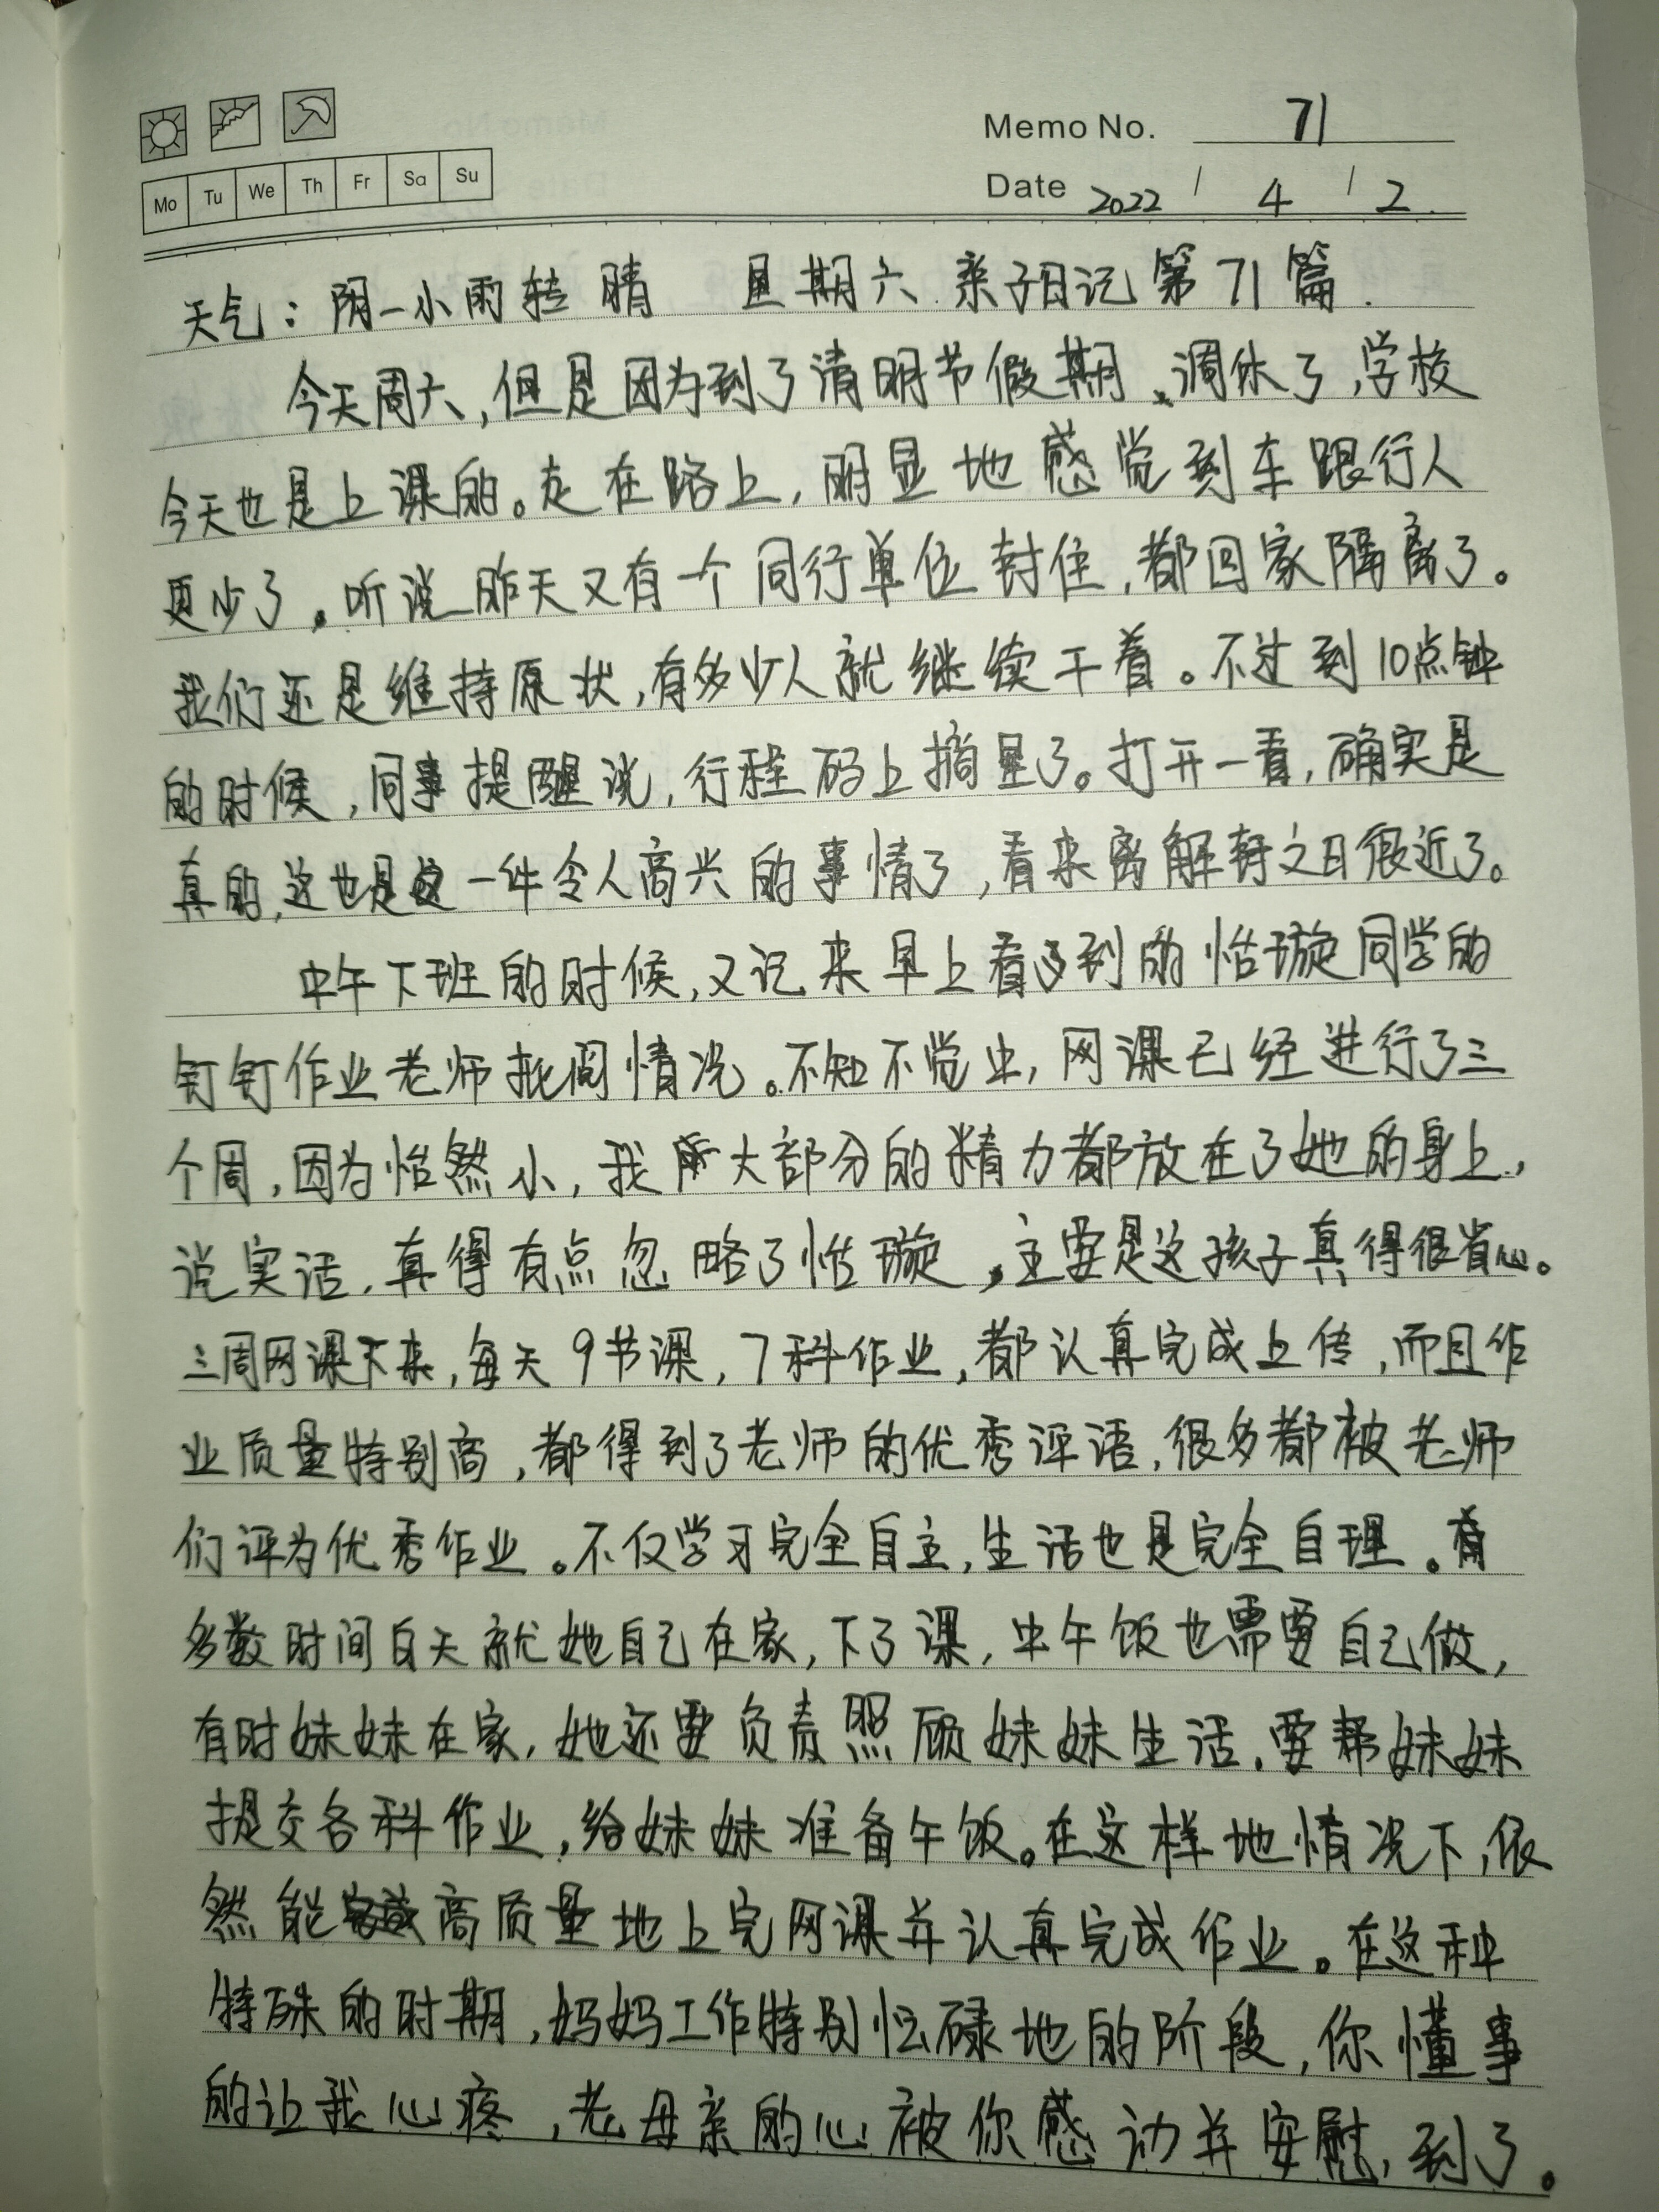 Memo No. 71
Mo Tu We Th Fr Sa Su
Date 2022 / 4 / 2.
天气：阴一小雨转晴 星期六 亲子日记第71篇.
今天周六，但是因为到了清明节假期，调休了，学校
今天也是上课的。走在路上，明显地感觉到车跟行人
更少了。听说昨天又有一个同行单位封住，都回家隔离了。
我们还是维持原状，有多少人就继续干着。不过到10点钟
的时候，同事提醒说，行程码上摘星了。打开一看，确实是
真的，这也是这一件令人高兴的事情了，看来离解封之日很近了。
中午下班的时候，又记来早上看到的怡璇同学的
钉钉作业老师批阅情况。不知不觉中，网课已经进行了三
个周，因为怡然小，我大部分的精力都放在了她的身上，
说实话，真得有点忽略了怡璇，主要是这孩子真得很省心。
三周网课下来，每天9节课，7科作业，都认真完成上传，而且作
业质量特别高，都得到了老师的优秀评语，很多都被老师
们评为优秀作业。不仅学习完全自主，生活也是完全自理。有
多数时间白天就她自己在家，下了课，中午饭也需要自己做，
有时妹妹在家，她还要负责照顾妹妹生活，要帮妹妹
提交各科作业，给妹妹准备午饭。在这样地情况下，依
然能高质量地上完网课并认真完成作业。在这种
特殊的时期，妈妈工作特别忙碌地的阶段，你懂事
的让我心疼，老母亲的心被你感动并安慰，到了。